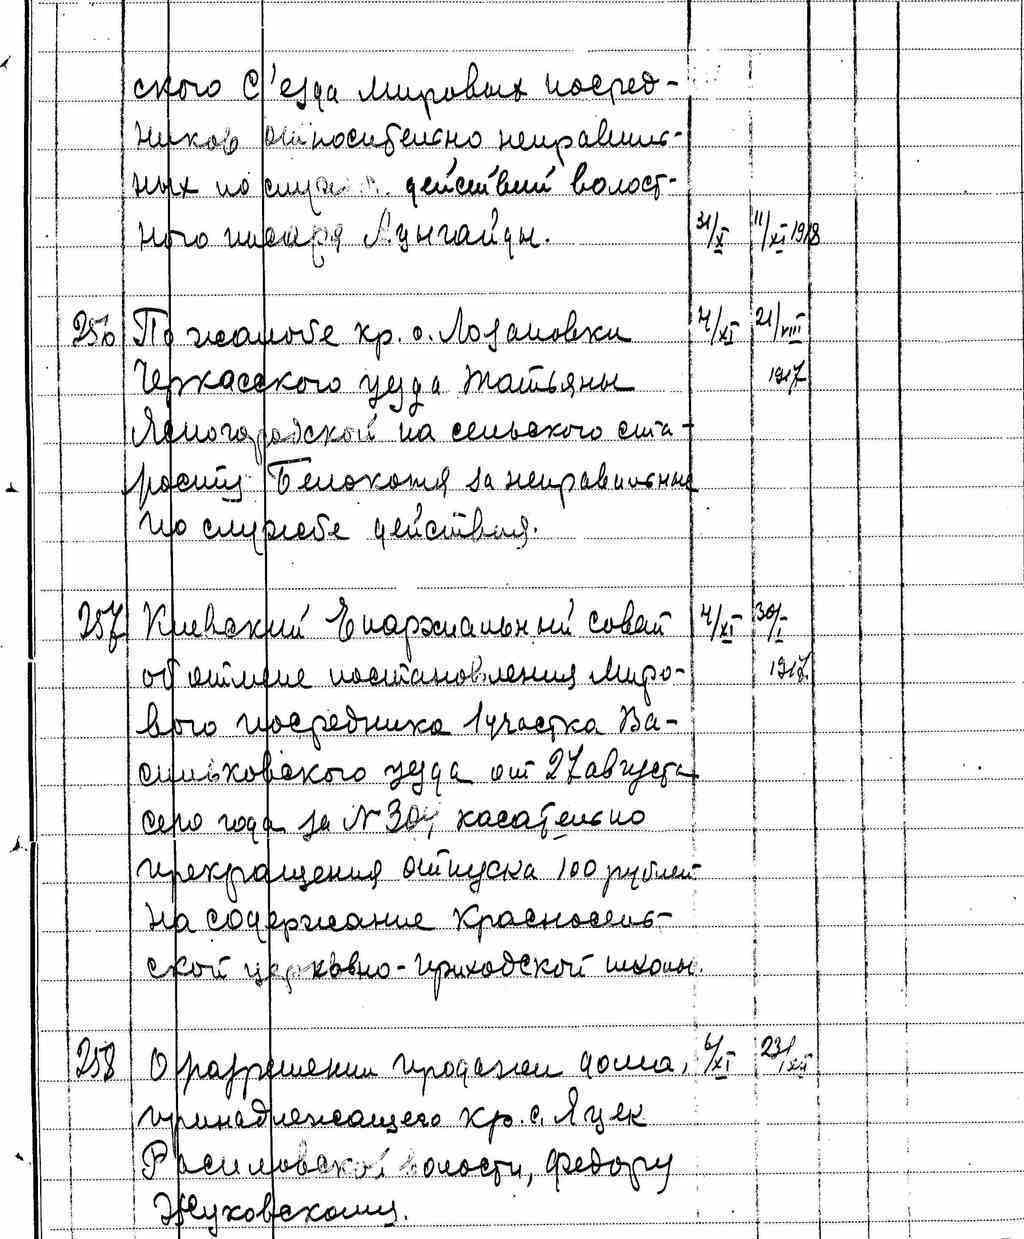 ского С'езда мировых посред-
ников относительно неправиль-
ных по службе действий волост-
ного писаря Лунгайды. 31/X 11/XI 1918
256 По жалобе кр. с. Лозановки 4/XI 21/VIII
Черкасского уезда Татьяны 1917
Ясногородской на сельского ста-
росту Белоконя за неправильные
по службе действия.
257 Киевский Епархиальный совет 4/XI 30/I
об отмене постановления Миро- 1917
вого посредника 1 участка Ва-
сильковского уезда от 27 августа
сего года за № 304, касательно
прекращения отпуска 100 рублей
на содержание Красносель-
ской церковно-приходской школы.
258 О разрешении продажи дома, 6/XI 23/XII
принадлежащего кр. с. Яцек
волости, Федору
Жуковскому.